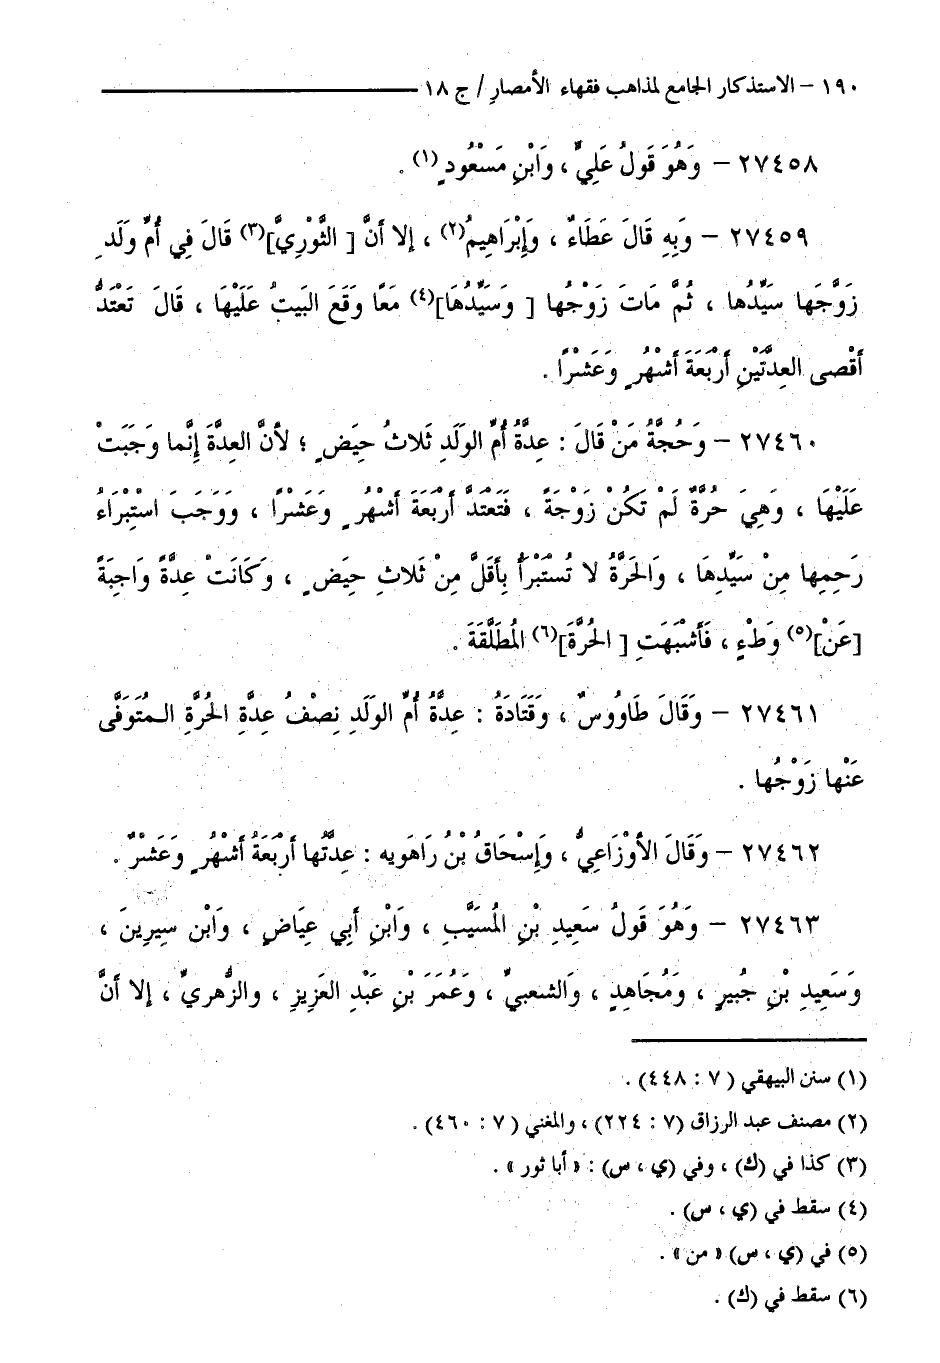 ١٩٠ – الاستذكار الجامع لمذاهب فقهاء الأمصار / ج ١٨
٢٧٤٥٨ – وَهُوَ قَولُ عَلِيٍّ ، وَابْنِ مَسْعُودٍ (١) .
٢٧٤٥٩ – وَبِهِ قَالَ عَطَاءٌ ، وَإِبْرَاهِيمُ(٢) ، إلا أنَّ [ الثَّوْرِيَّ](٣) قَالَ فِي أُمِّ وَلَدٍ
زَوَّجَها سَيِّدُها ، ثُمَّ مَاتَ زَوْجُها [ وَسَيِّدُهَا](٤) مَعًا وَقَعَ البَيتُ عَلَيْهَا ، قَالَ تَعْتَدُّ
أَقْصى العِدَّتَيْنِ أَرْبَعَةَ أَشْهُرٍ وَعَشْرًا .
٢٧٤٦٠ – وَحُجَّةُ مَنْ قَالَ : عِدَّةُ أُمِّ الوَلَدِ ثَلاثُ حِيَضٍ ؛ لأنَّ العِدَّةَ إِنَّما وَجَبَتْ
عَلَيْهَا ، وَهِيَ حُرَّةٌ لَمْ تَكُنْ زَوْجَةً ، فَتَعْتَدَّ أَرْبَعَةَ أَشْهُرٍ وَعَشْرًا ، وَوَجَبَ اسْتِبْرَاءُ
رَحِمِها مِنْ سَيِّدِهَا ، وَالحَرَّةُ لا تُسْتَبْرَأُ بِأَقَلَّ مِنْ ثَلاثِ حِيَضٍ ، وَكَانَتْ عِدةً وَاجِبَةً
[عَنْ](٥) وَطْءٍ ، فَأَشْبَهَتِ [ الحُرَّةَ](٦) المُطَلَّقَةَ .
٢٧٤٦١ – وَقَالَ طَاوُوسٌ ، وَقَتَادَةُ : عِدَّةُ أُمِّ الوَلَدِ نِصْفُ عِدةِ الحُرَّةِ المتَوَفَّى
عَنْها زَوْجُها .
٢٧٤٦٢ – وَقَالَ الأَوْزَاعِيُّ ، وَإِسْحَاقُ بْنُ رَاهَويه : عِدَّتُها أَرْبَعَةُ أَشْهُرٍ وَعَشْرٌ .
٢٧٤٦٣ – وَهُوَ قَولُ سَعِيدِ بْنِ المُسَيَّبِ ، وَابْنِ أَبِي عِيَاضٍ ، وَابْنِ سِيرِينَ ،
وَسَعِيدِ بْنِ جُبيرٍ ، وَمُجَاهِدٍ ، وَالشعبيِّ ، وَعُمَرَ بْنِ عَبْدِ العَزِيزِ ، والزُّهريِّ ، إلا أنَّ
(١) سنن البيهقي ( ٧ : ٤٤٨) .
(٢) مصنف عبد الرزاق (٧ : ٢٢٤) ، والمغني ( ٧ : ٤٦٠) .
(٣) كذا في (ك) ، وفي (ي ، س) : « أبا ثور » .
(٤) سقط في (ي ، س) .
(٥) في (ي ، س) « من » .
(٦) سقط في (ك) .